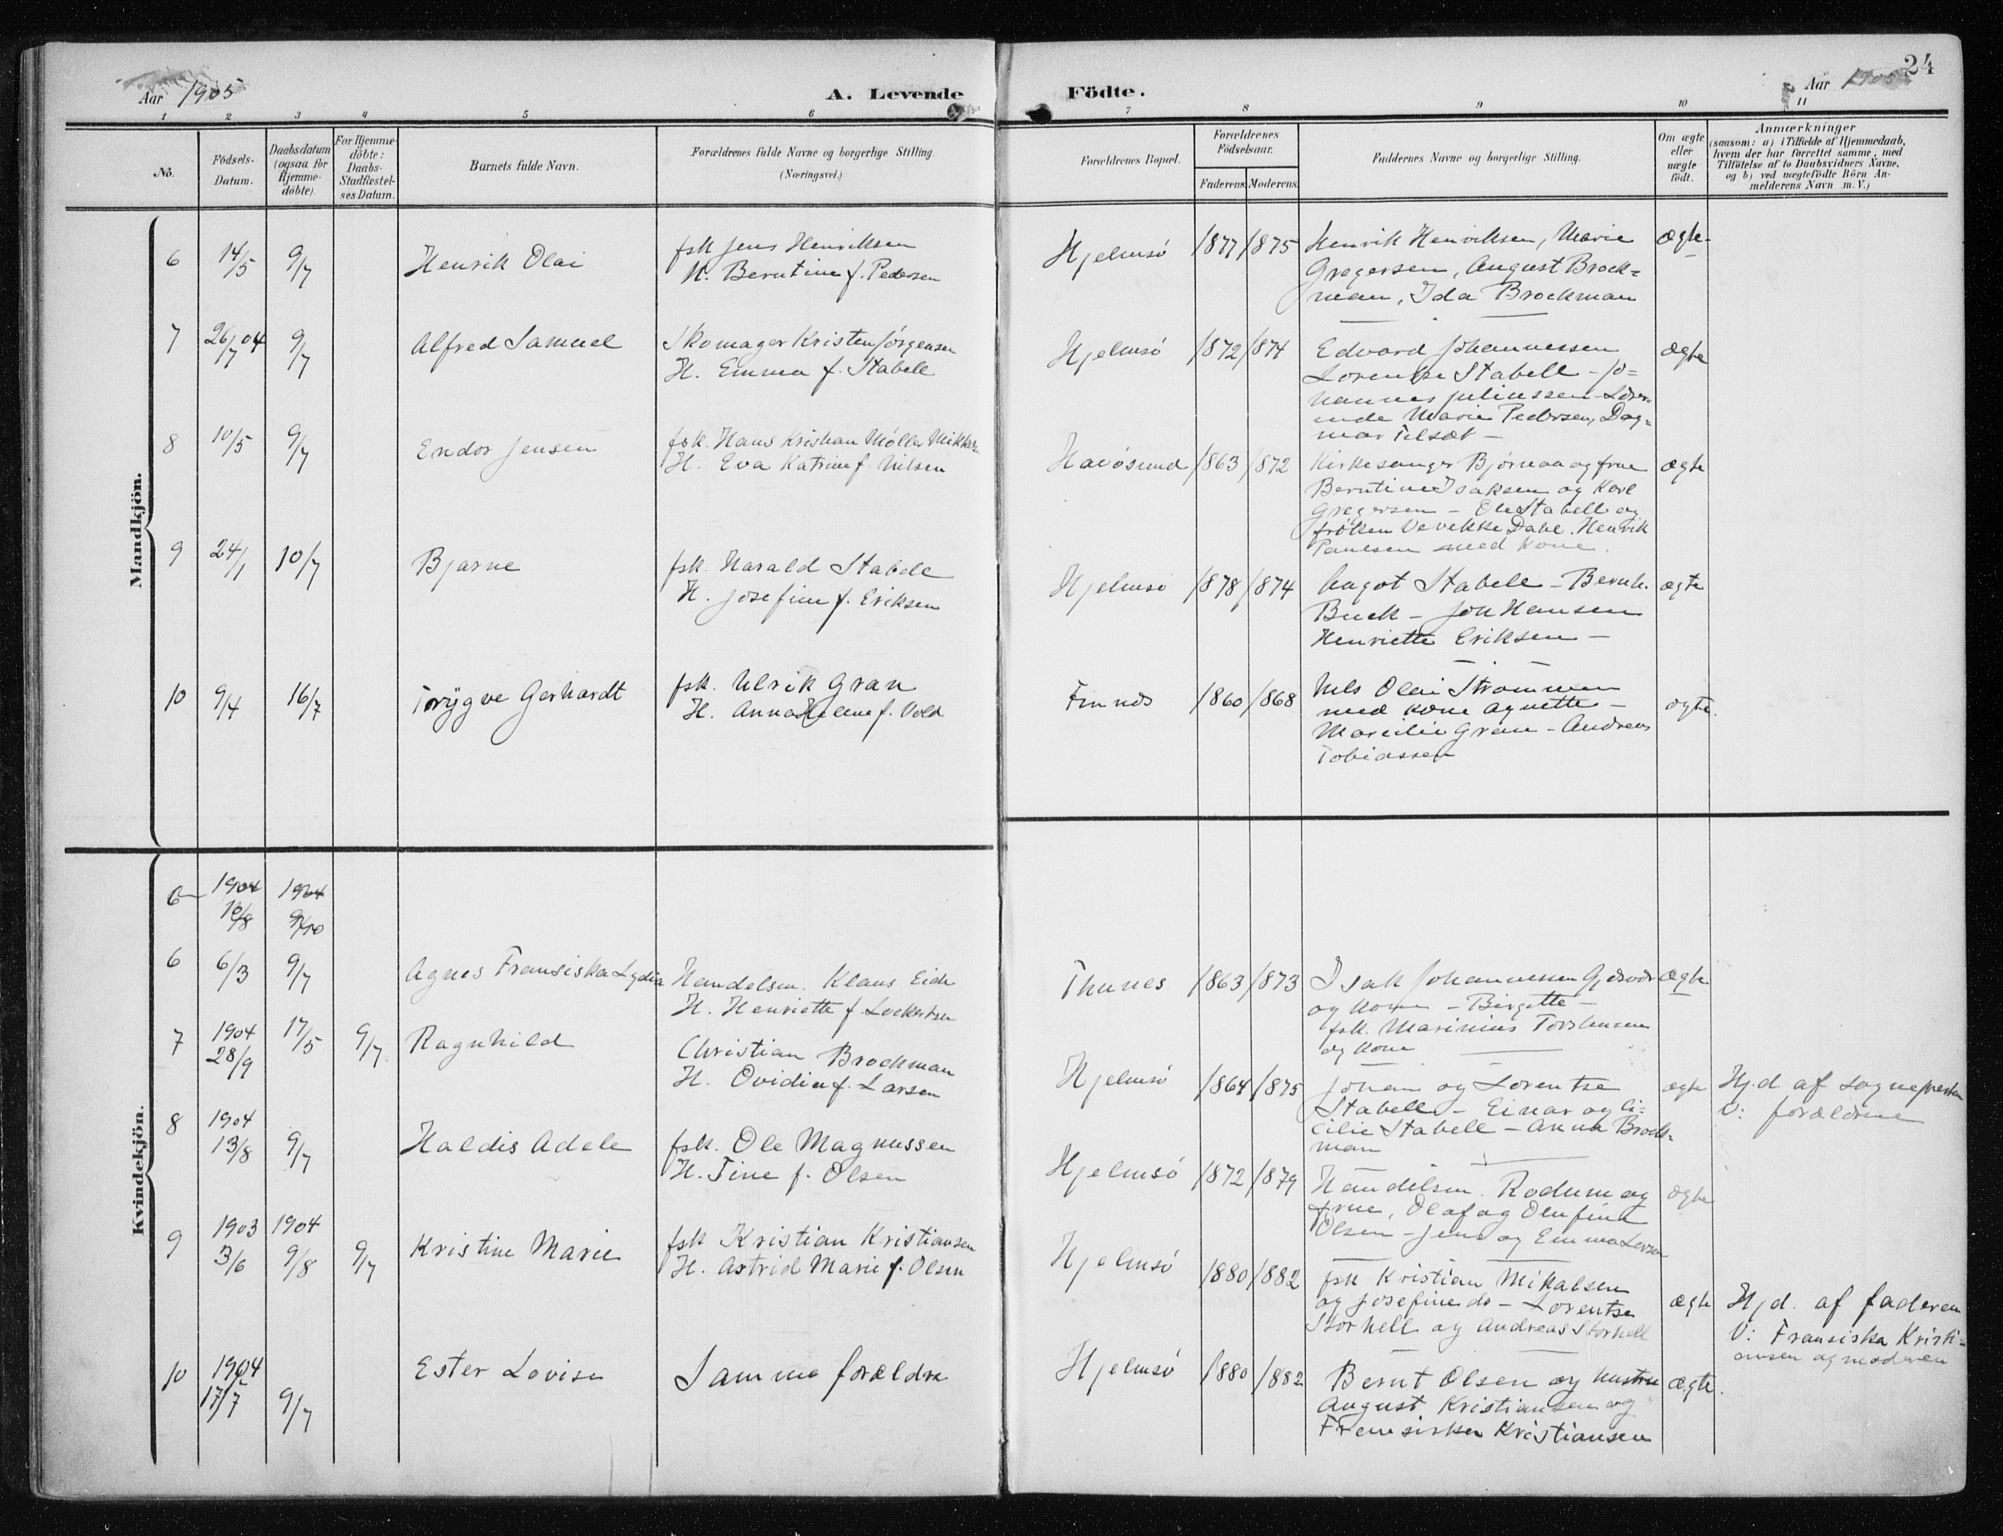 24
Aar 1905
A. Levende
Födte.
Aar 1905
1 2 3 4 5 6 7 8 9 10 11
No.
Födsels-
Datum.
Daabsdatum
(ogsaa for
Hjemme-
döbte).
For Hjemme-
döbte:
Daabs-
Stadfæstel-
ses Datum.
Barnets fulde Navn.
Forældrenes fulde Navne og borgerlige Stilling.
(Næringsvei.)
Forældrenes Bopæl.
Forældrenes
Födselsaar.
Faderens. Moderens.
Faddernes Navne og borgerlige Stilling.
Om ægte
eller
uægte
födt.
Anmærkninger
(saasom: a) i Tilfælde af Hjemmedaab,
hvem der har forrettet samme, med
Tilföielse af to Daabsvidners Navne,
og b) ved uægtefödte Börn An-
melderens Navn m. V.)
Mandkjön.
6 14/5 9/7 Henrik Olai
fsk Jens Henriksen
H. Berntine f. Pedersen
Hjelmsö 1877 1875
Henrik Henriksen, Marie
Gregersen, August Brock=
man, Ida Brockman
ægte
7 26/7 04 9/7 Alfred Samuel
Skomager Kristen Jørgensen
H. Emma f. Stabell
Hjelmsö 1872 1874
Edvard Johannessen
Lorentse Stabell - Jo=
hannes Juliussen
Marie Pedersen, Dag=
mar Tilset -
ægte
8 10/5 9/7 Endor Jensen
fsk. Hans Kristian Møller
H. Eva Katrine f. Nilsen
Havösund 1863 1872
Kirkesanger Bjørnaa og frue
Berntine Isaksen og Karl
Gregersen - Ole Stabell og
frøken Vevikke Dahl. Henrik
Paulsen med kone.
ægte
9 24/1 10/7 Bjarne
fsk. Harald Stabell
H. Josefine f. Eriksen
Hjelmsö 1878 1874
Aagot Stabell - Bernh.
Buck - Joh Hansen
Henriette Eriksen -
ægte
10 9/4 16/7 Trygve Gerhardt
fsk. Ulrik Gran
H. Anna Helene f. Vold
Finnes 1860 1868
Nils Olai Strømmen
med kone Agnette -
Gran - Andreas
Tobiassen
ægte.
Kvindekjön.
6 1904 10/8 1904 9/10
6 6/3 9/7 Agnes Fransiska Lydia
Handelsm. Klaus Eide
H. Henriette f. Lockertsen
Thunes 1863 1873
Isak Johannessen Gjesvær
og kone - Birgette -
fsk. Marinius Torstensen
og kone
Ægte
7 1904 28/9 17/5 9/7. Ragnhild
Christian Brockman
H. Ovidia f. Larsen
Hjelmsö 1864 1875
Johan og Lorentse
Stabell - Einar og Ci=
cilie Stabell - Anna Brock=
man
ægte
Hj.d af sognepresten
V: forældrene
8 1904 13/8 9/7 Haldis Adele
fsk. Ole Magnussen
H. Tine f. Olsen
Hjelmsö 1872 1879
Handelsm. Rodum og
frue, Olaf og Olufine
Olsen - Jens og Emma Larsen
ægte
9 1903 3/6 1904 9/8 9/7 Kristine Marie
fsk Kristian Kristiansen
H. Astrid Marie f. Olsen
Hjelmsö 1880 1882
fsk Kristian Mikalsen
og Josefine do - Lorentse
Storhell og Andreas Storhell
ægte
Hj.d. af faderen
V: Fransiska Kristi=
ansen og moderen
10 1904 17/7 9/7 Ester Lovise
Samme forældre
Hjelmsö 1880 1882
Bernt Olsen og hustru
August Kristiansen og
Fransiska Kristiansen
ægte.